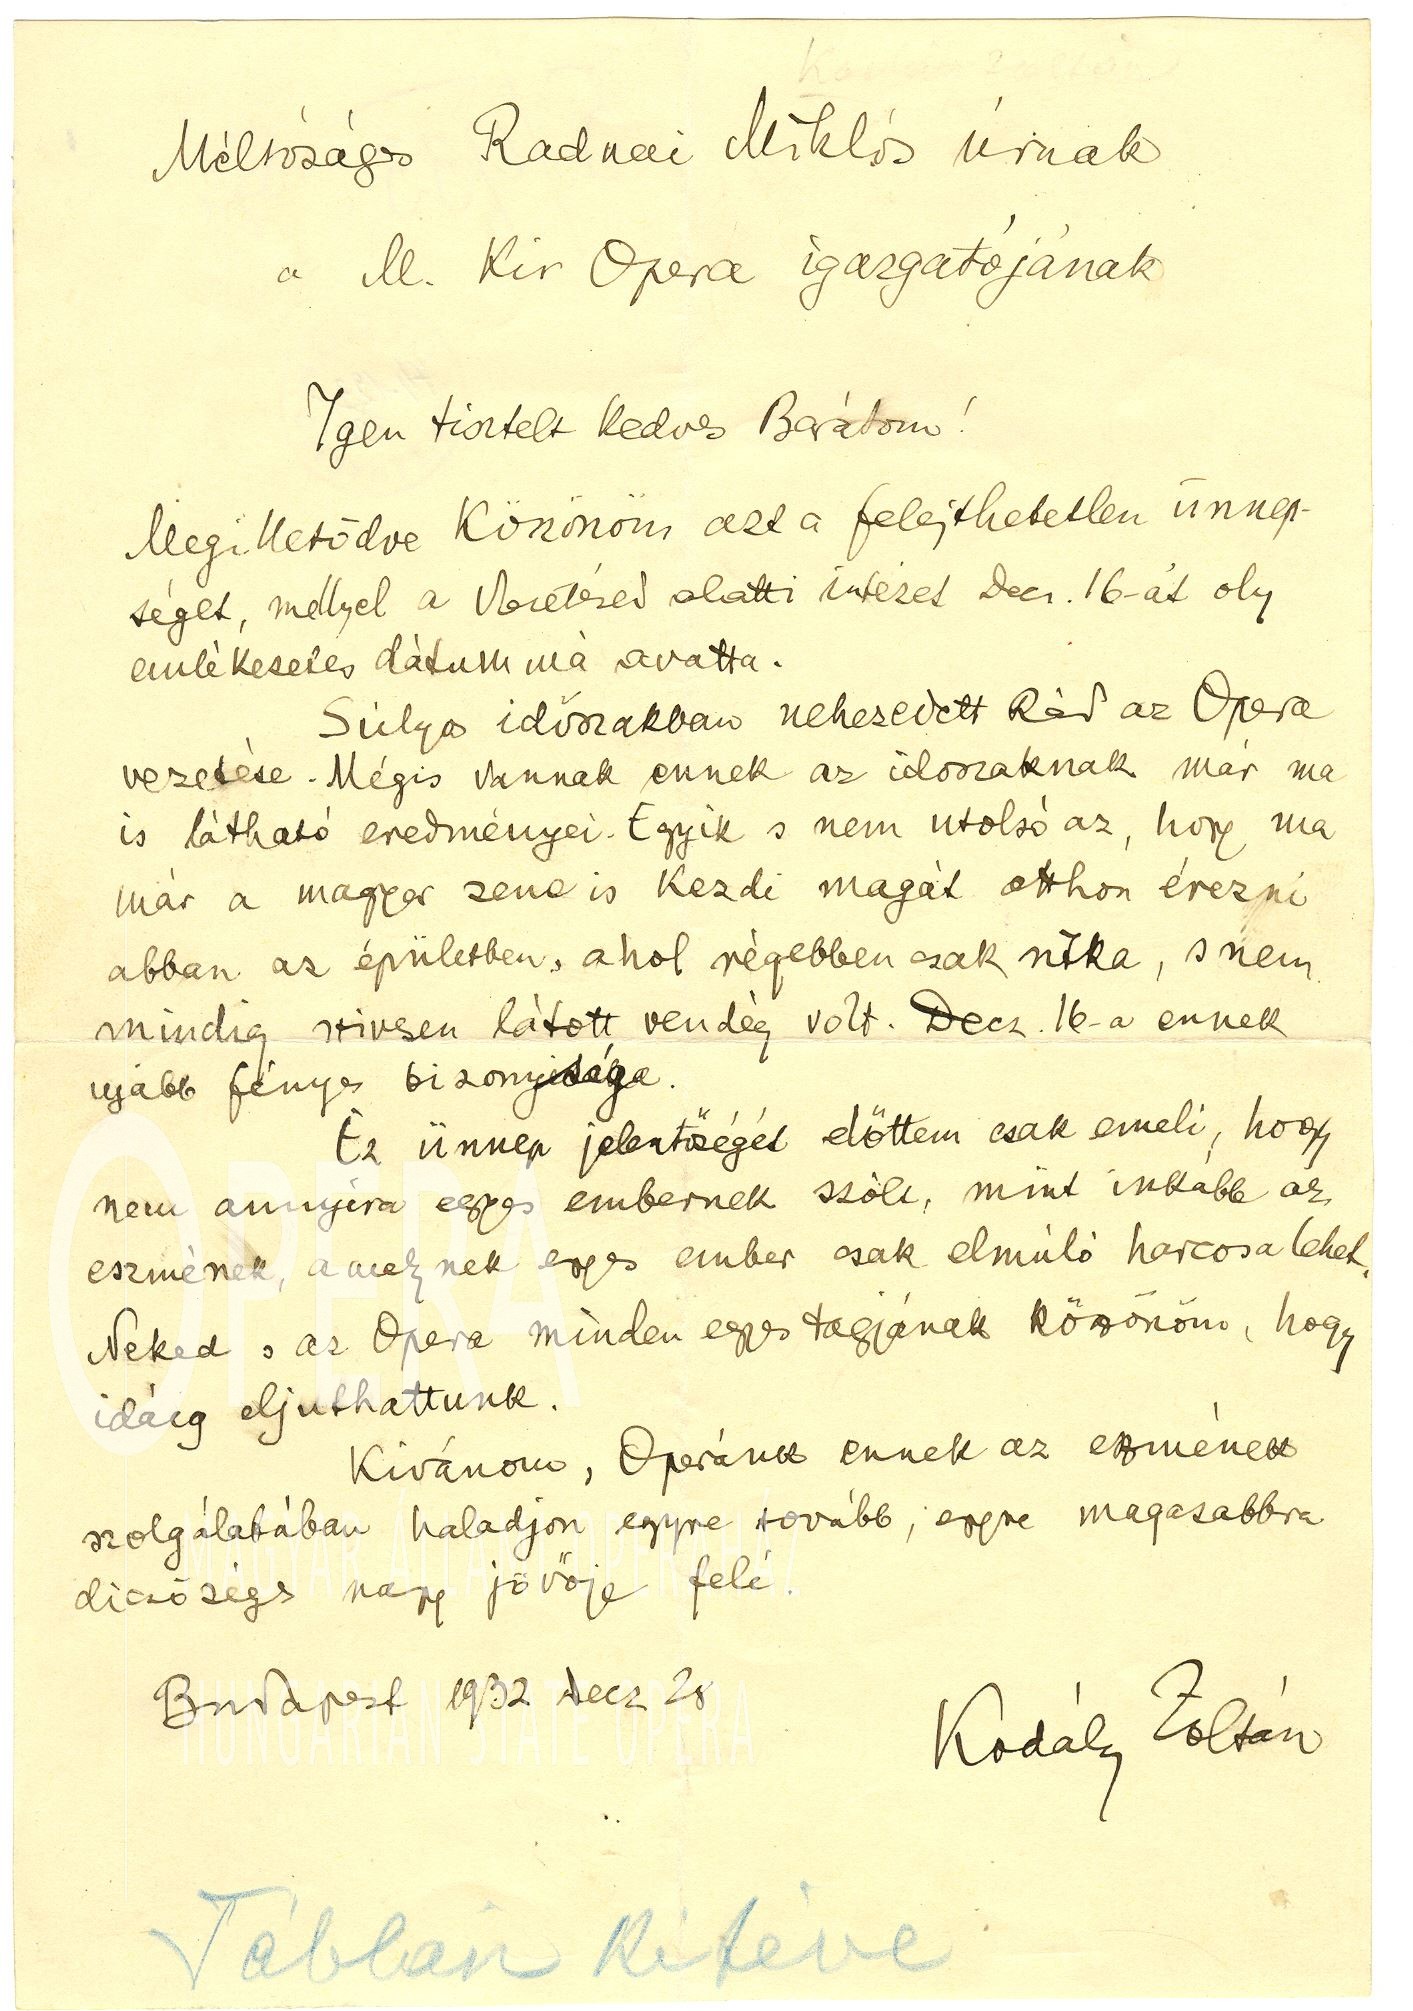 Méltóságos Radnai Miklós úrnak
a M. Kir Opera igazgatójának
Igen tisztelt kedves Barátom!
Megilletődve köszönöm azt a felejthetetlen ünnep-
séget, mellyel a Vezetésed alatti intézet Decz. 16-át oly
emlékezetes dátummá avatta.
Súlyos időszakban nehezedett Rád az Opera
vezetése. Mégis vannak ennek az időszaknak már ma
is látható eredményei. Egyik s nem utolsó az, hogy ma
már a magyar zene is kezdi magát otthon érezni
abban az épületben, ahol régebben csak ritka, s nem
mindig szivesen látott vendég volt. Decz. 16-a ennek
ujabb fényes bizonyisága.
Ez ünnep jelentőségét előttem csak emeli, hogy
nem annyira egyes embernek szólt, mint inkább az
eszmének, amelynek egyes ember csak elmúló harcosa lehet.
Neked s az Opera minden egyes tagjának köszönöm, hogy
idáig eljuthattunk.
Kivánom, Operánk ennek az eszmének
szolgálatában haladjon egyre tovább, egyre magasabbra
dicsőséges nagy jövője felé.
Budapest 1932 decz 28
Kodály Zoltán
Táblán kitéve
OPERA
HUNGARIAN STATE OPERA